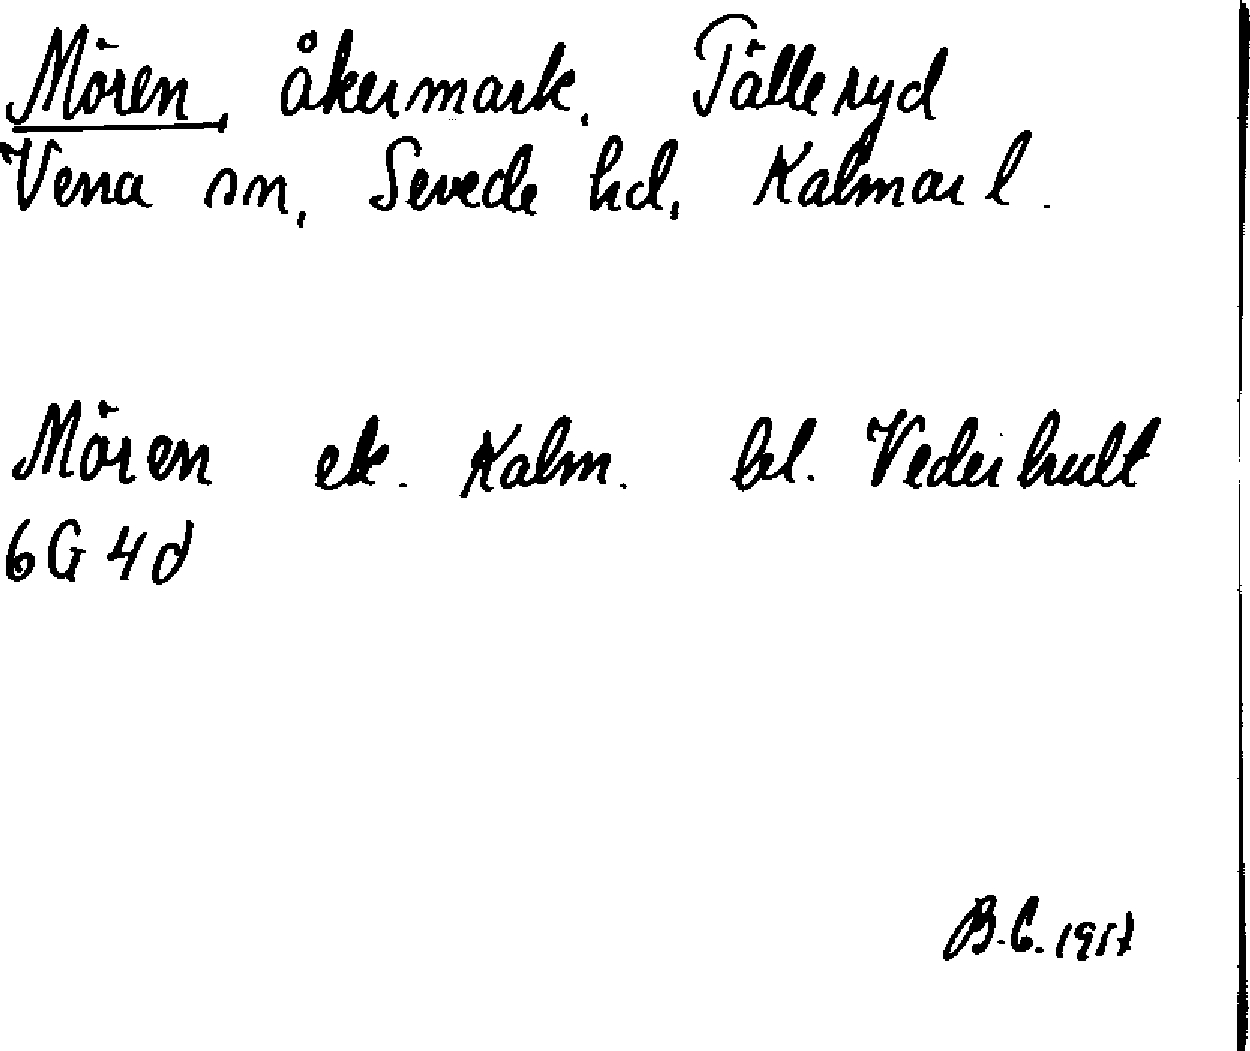 Mören, åkermark. Tälleryd
Vena sn, Sevede hd, Kalmar l.
Mören ek. Kalm. bl. Vederhult
6G 4d
B.C. 1957